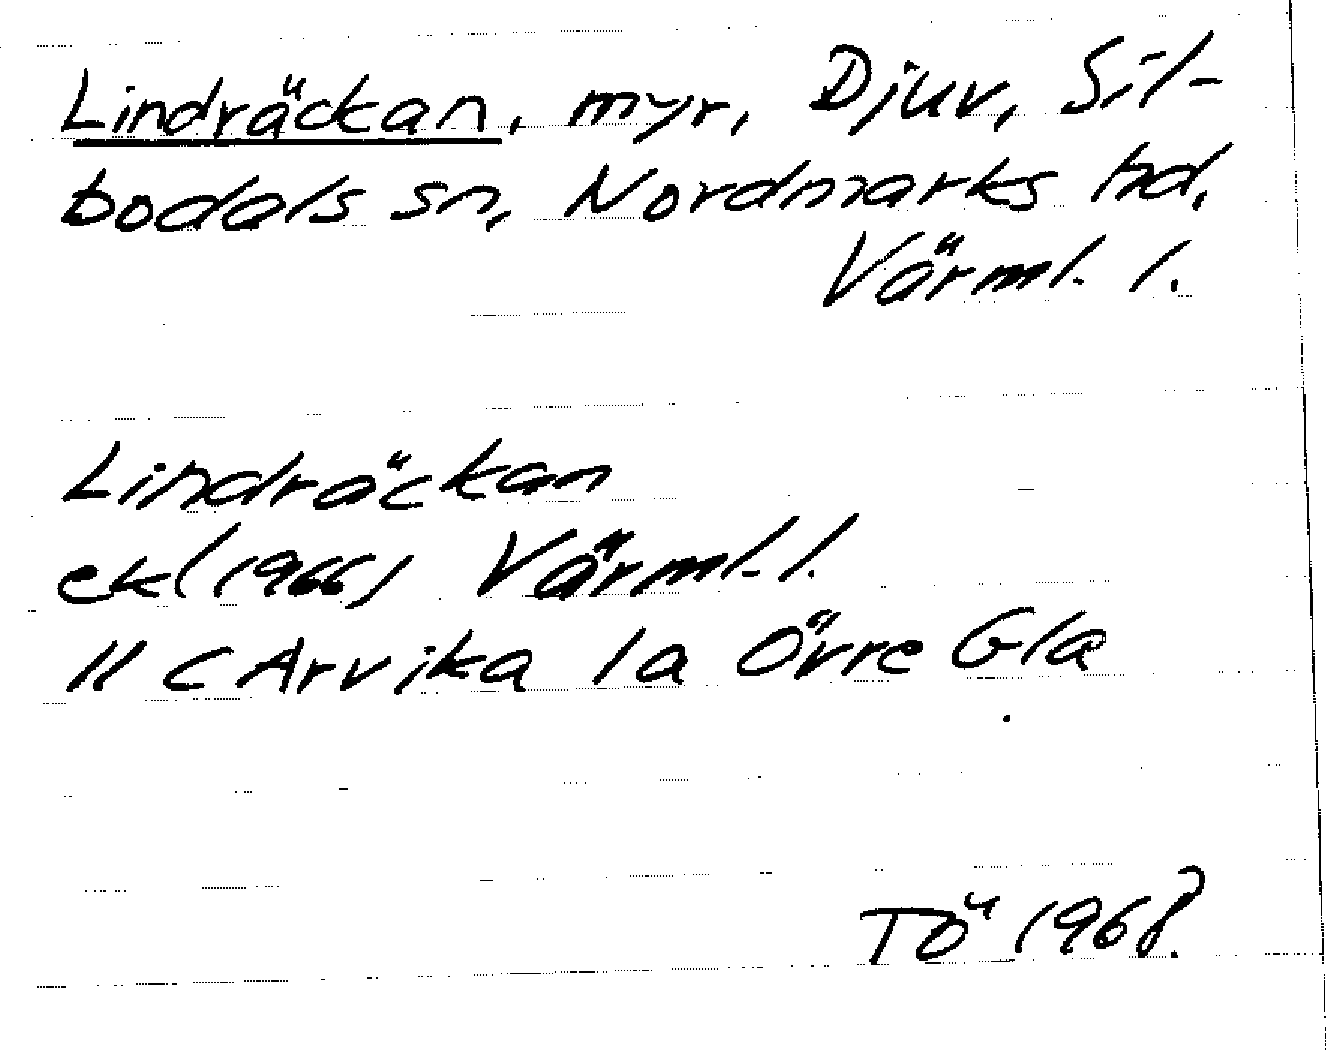 Lindräckan, myr, Djuv, Sil-
bodals sn, Nordmarks hd,
Värml. l.
Lindräckan
ek (1966) Värml. l.
11 C Arvika 1a Övre Gla
TÖ 1968.